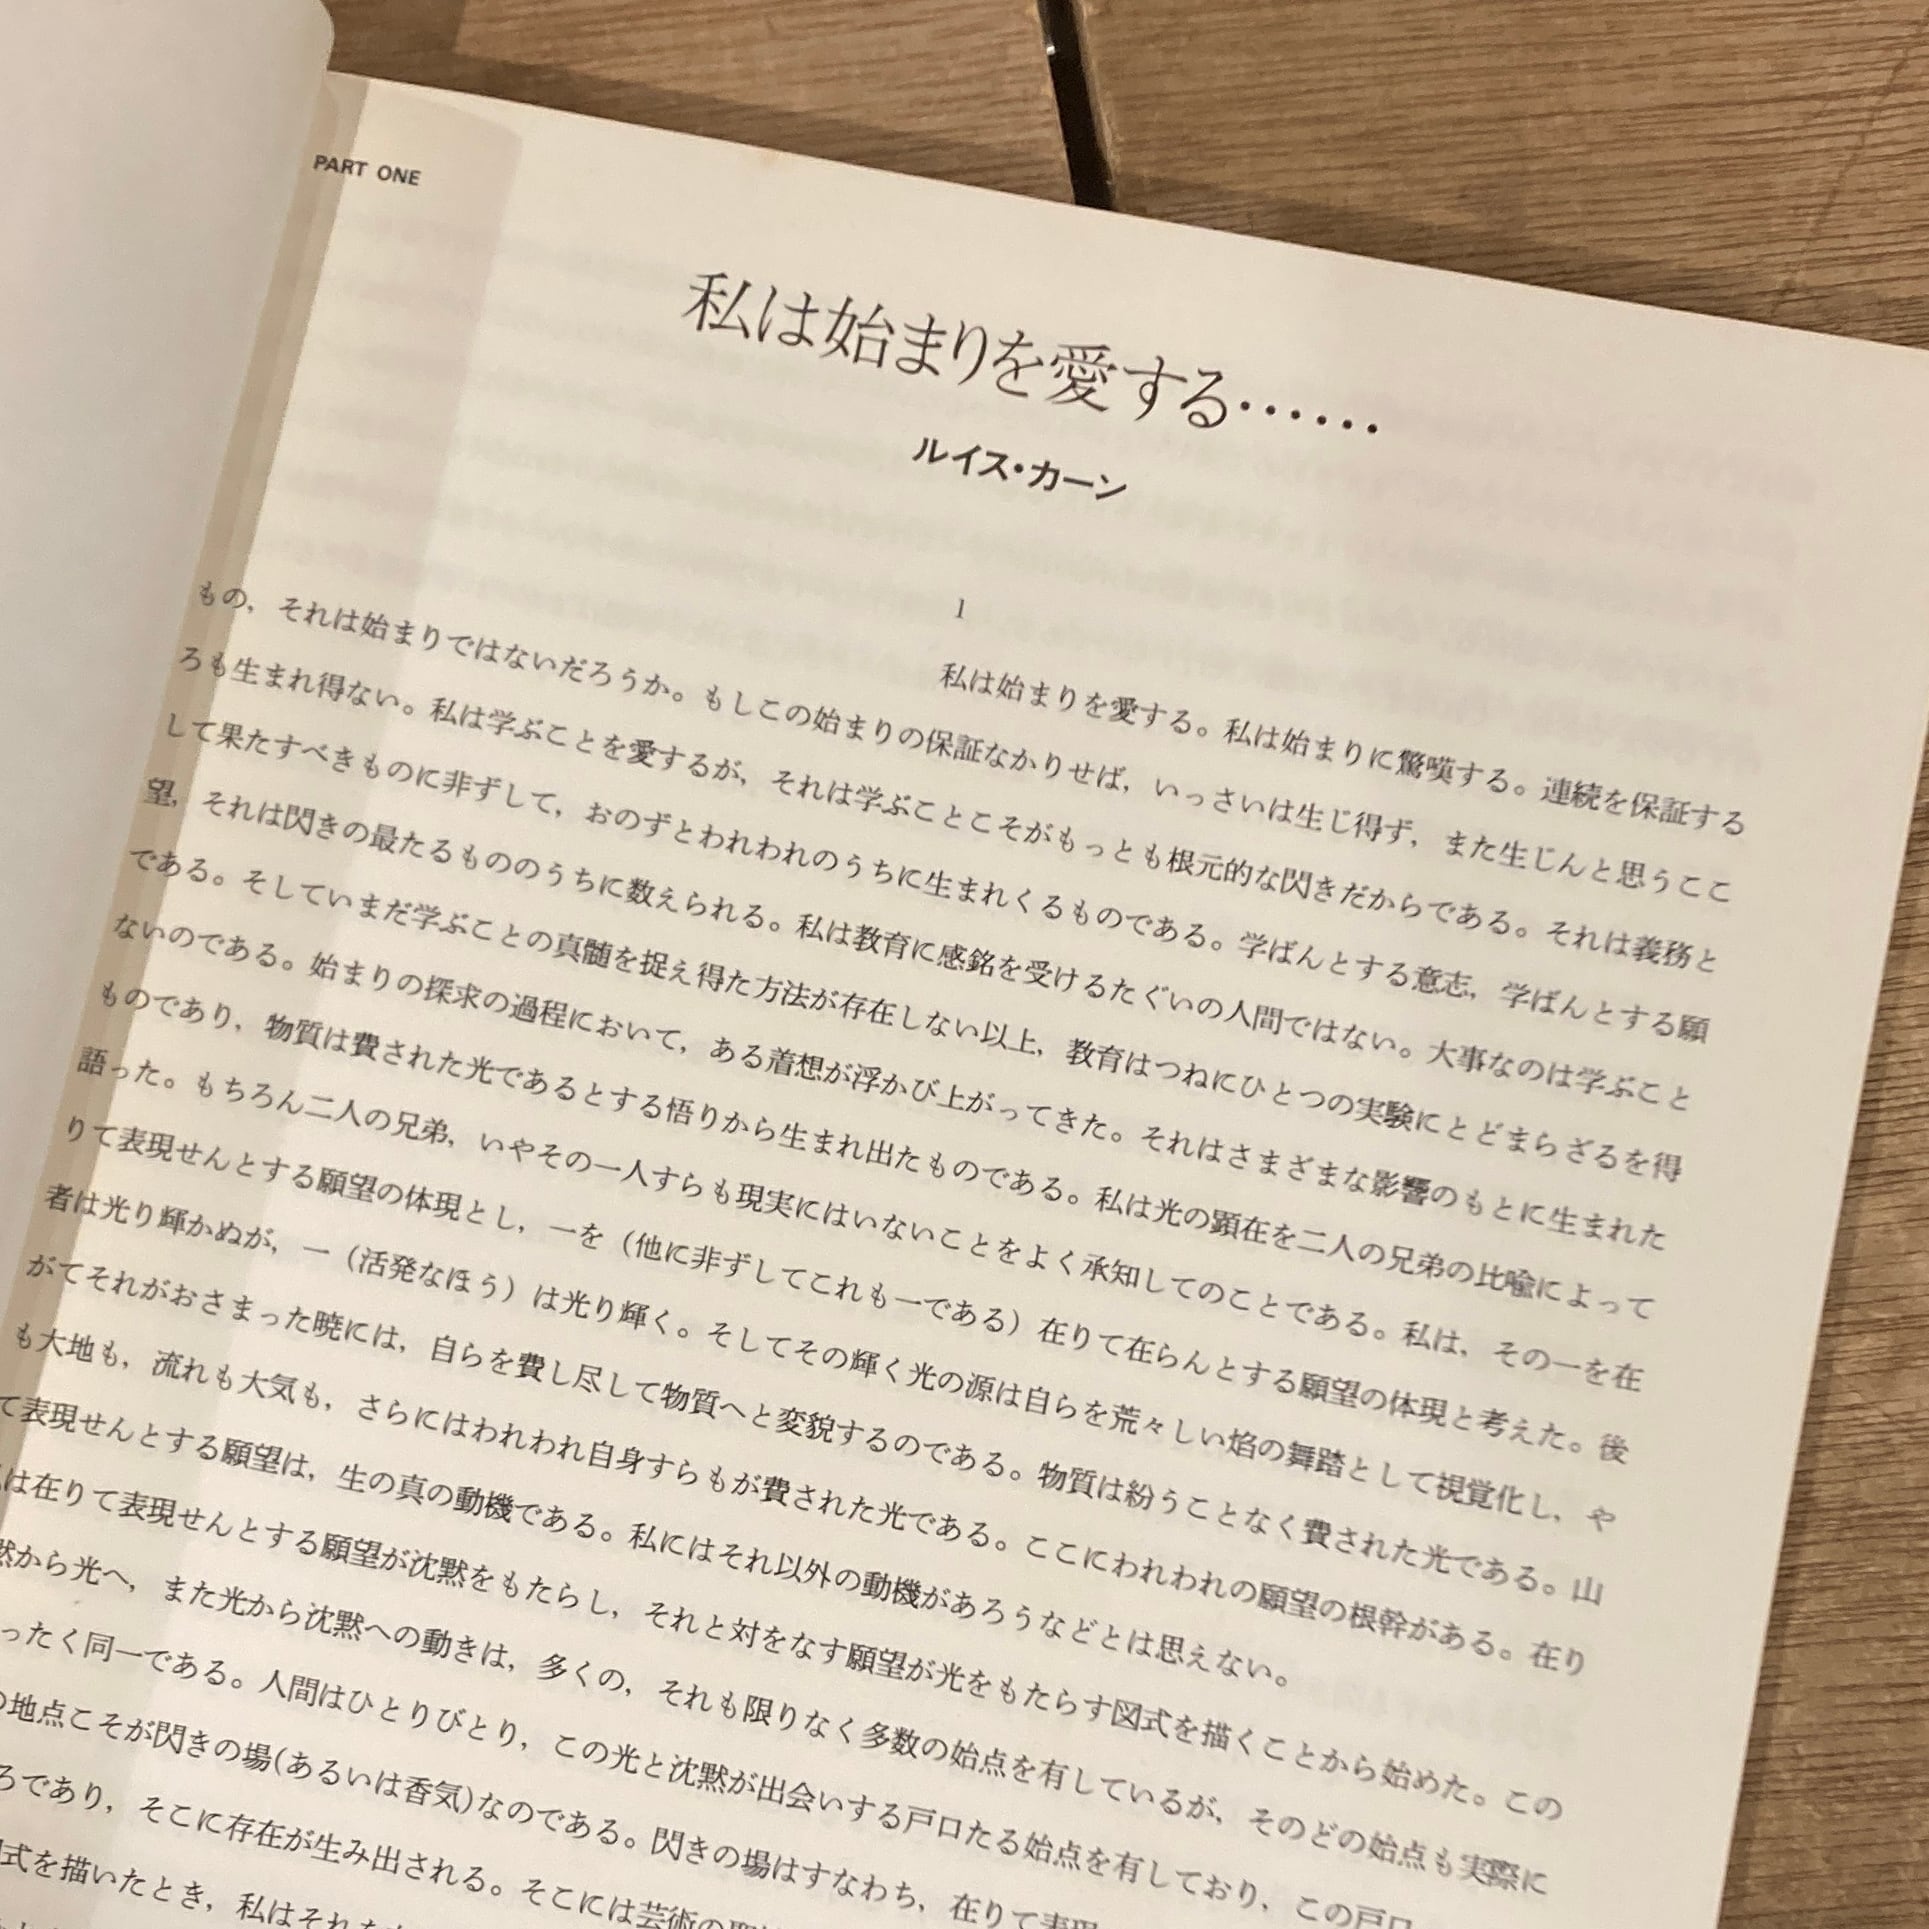 PART ONE
私は始まりを愛する……
ルイス・カーン
1
私は始まりを愛する。私は始まりに驚嘆する。連続を保証する
もの，それは始まりではないだろうか。もしこの始まりの保証なかりせば，いっさいは生じ得ず，また生じんと思うここ
ろも生まれ得ない。私は学ぶことを愛するが，それは学ぶことこそがもっとも根元的な閃きだからである。それは義務と
して果たすべきものに非ずして，おのずとわれわれのうちに生まれくるものである。学ばんとする意志，学ばんとする願
望，それは閃きの最たるもののうちに数えられる。私は教育に感銘を受けるたぐいの人間ではない。大事なのは学ぶこと
である。そしていまだ学ぶことの真髄を捉え得た方法が存在しない以上，教育はつねにひとつの実験にとどまらざるを得
ないのである。始まりの探求の過程において，ある着想が浮かび上がってきた。それはさまざまな影響のもとに生まれた
ものであり，物質は費された光であるとする悟りから生まれ出たものである。私は光の顕在を二人の兄弟の比喩によって
語った。もちろん二人の兄弟，いやその一人すらも現実にはいないことをよく承知してのことである。私は，その一を在
りて表現せんとする願望の体現とし，一を（他に非ずしてこれも一である）在りて在らんとする願望の体現と考えた。後
者は光り輝かぬが，一（活発なほう）は光り輝く。そしてその輝く光の源は自らを荒々しい焔の舞踏として視覚化し，や
がてそれがおさまった暁には，自らを費し尽して物質へと変貌するのである。物質は紛うことなく費された光である。山
も大地も，流れも大気も，さらにはわれわれ自身すらもが費された光である。ここにわれわれの願望の根幹がある。在り
て表現せんとする願望は，生の真の動機である。私にはそれ以外の動機があろうなどとは思えない。
は在りて表現せんとする願望が沈黙をもたらし，それと対をなす願望が光をもたらす図式を描くことから始めた。この
黙から光へ，また光から沈黙への動きは，多くの，それも限りなく多数の始点を有しているが，そのどの始点も実際に
ったく同一である。人間はひとりびとり，この光と沈黙が出会いする戸口たる始点を有しており，この戸口
の地点こそが閃きの場(あるいは香気)なのである。閃きの場はすなわち，在りて表現
ろであり，そこに存在が生み出される。そこには芸術の
式を描いたとき，私はそれを